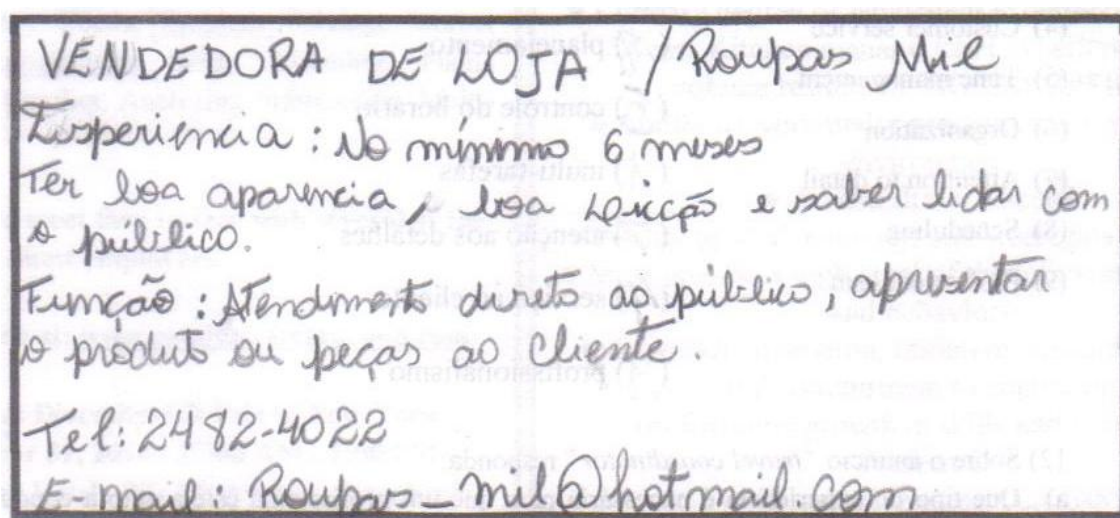 VENDEDORA DE LOJA / Roupas Mil
Experiencia : No mínimo 6 meses
Ter boa aparencia, boa dicção e saber lidar com
o público.
Função : Atendimento direto ao público, apresentar
o produto ou peças ao cliente.
Tel: 2482-4022
E-mail: Roupas_mil@hotmail.com